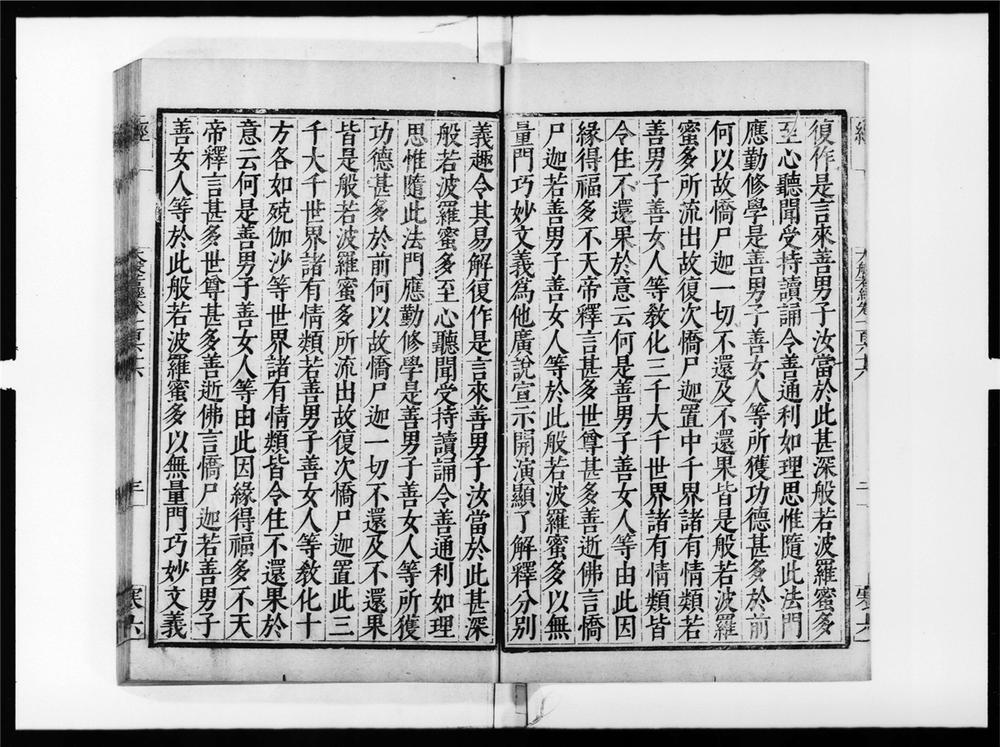 復作是言來善男子汝當於此甚深般若波羅蜜多
至心聽聞受持讀誦令善通利如理思惟隨此法門
應勤修學是善男子善女人等所獲功德甚多於前
何以故憍尸迦一切不還及不還果皆是般若波羅
蜜多所流出故復次憍尸迦置中千界諸有情類若
善男子善女人等敎化三千大千世界諸有情類皆
令住不還果於意云何是善男子善女人等由此因
緣得福多不天帝釋言甚多世尊甚多善逝佛言憍
尸迦若善男子善女人等於此般若波羅蜜多以無
量門巧妙文義爲他廣說宣示開演顯了解釋分別
義趣令其易解復作是言來善男子汝當於此甚深
般若波羅蜜多至心聽聞受持讀誦令善通利如理
思惟隨此法門應勤修學是善男子善女人等所獲
功德甚多於前何以故憍尸迦一切不還及不還果
皆是般若波羅蜜多所流出故復次憍尸迦置此三
千大千世界諸有情類若善男子善女人等敎化十
方各如殑伽沙等世界諸有情類皆令住不還果於
意云何是善男子善女人等由此因緣得福多不天
帝釋言甚多世尊甚多善逝佛言憍尸迦若善男子
善女人等於此般若波羅蜜多以無量門巧妙文義